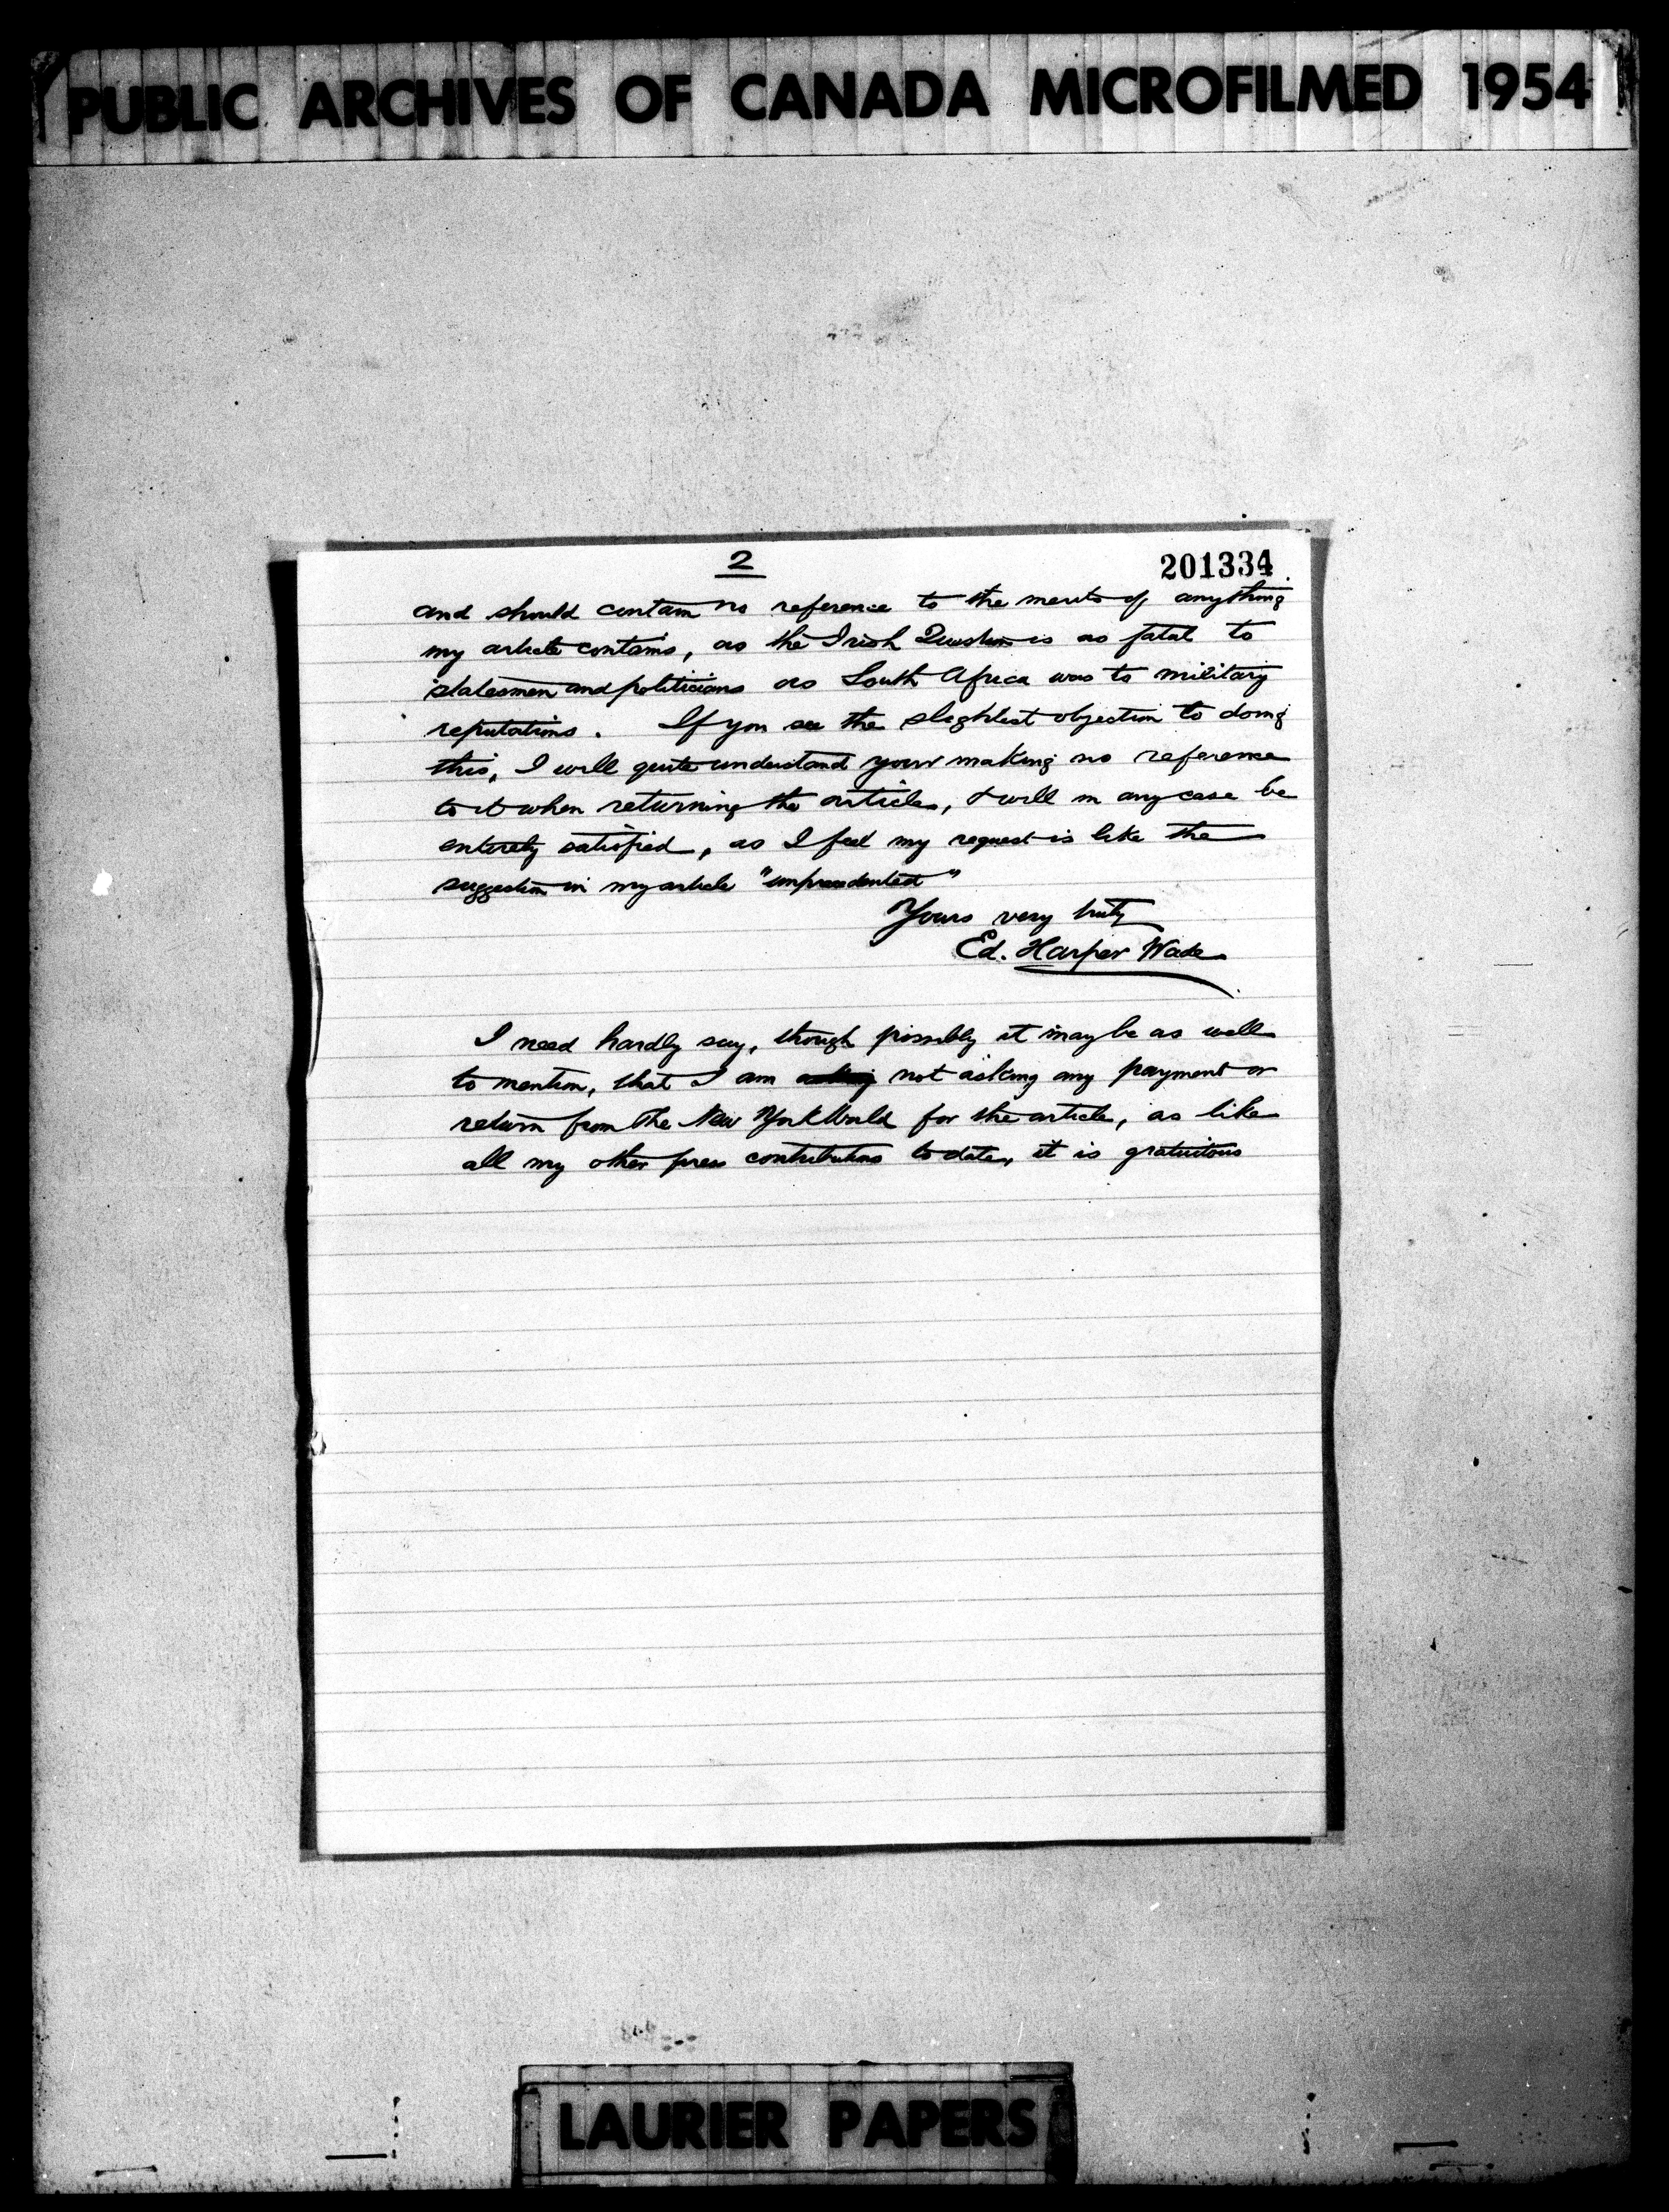 PUBLIC ARCHIVES OF CANADA MICROFILMED 1954
2
201334
and should contain no reference to the merits of anything
my article contains, as the Irish Question is as fatal to
statesmen and politicians as South Africa was to military
reputations. If you see the slightest objection to doing
this, I will quite understand your making no reference
to it when returning the article, & will in any case be
entirely satisfied, as I feel my request is like the
suggestion in my article "unprecedented"
Yours very truly
Ed. Harper Wade
I need hardly say, though possibly it may be as well
to mention, that I am asking not asking any payment or
return from The New York World for the article, as like
all my other press contributions to date, it is gratuitous
LAURIER PAPERS